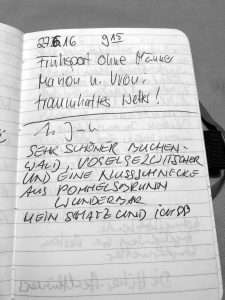 27.6.16 9 15
Frühsport ohne Männer
Marion u. Uron,
traumhaftes Wetter!
10. Juli
SEHR SCHÖNER BUCHEN-
WALD, VOGELGEZWITSCHER
UND EINE NUSSSCHNECKE
AUS POMMELSBRUNN
WUNDERBAR
MEIN SCHATZ UND ICH